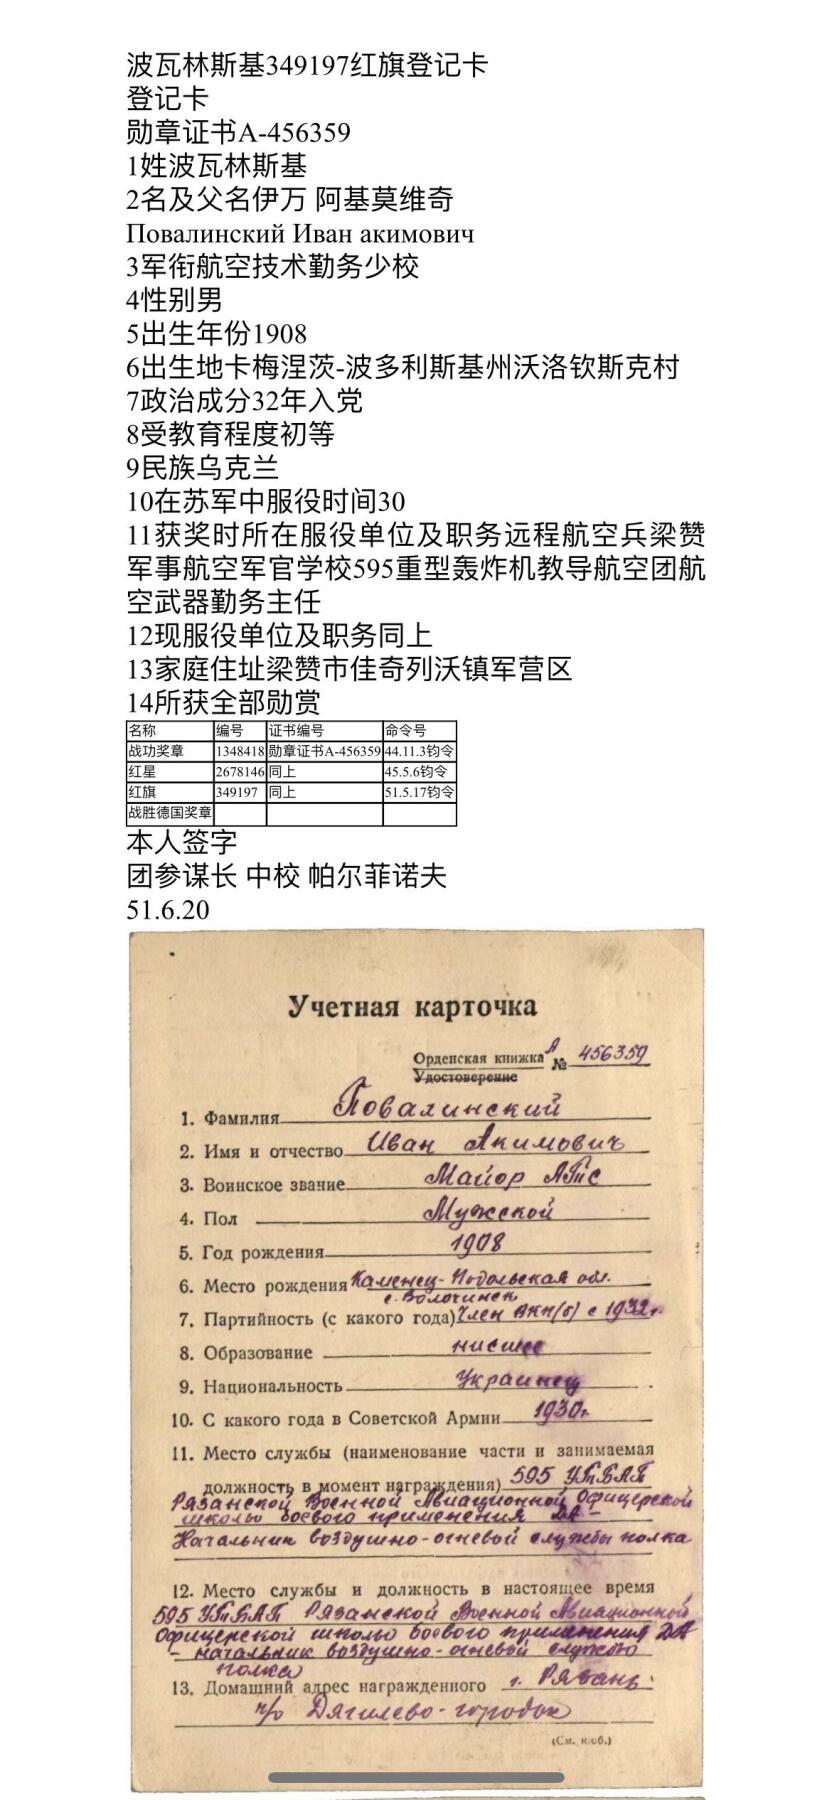 波瓦林斯基349197红旗登记卡
登记卡
勋章证书A-456359
1姓波瓦林斯基
2名及父名伊万 阿基莫维奇
Повалинский Иван акимович
3军衔航空技术勤务少校
4性别男
5出生年份1908
6出生地卡梅涅茨-波多利斯基州沃洛钦斯克村
7政治成分32年入党
8受教育程度初等
9民族乌克兰
10在苏军中服役时间30
11获奖时所在服役单位及职务远程航空兵梁赞
军事航空军官学校595重型轰炸机教导航空团航
空武器勤务主任
12现服役单位及职务同上
13家庭住址梁赞市佳奇列沃镇军营区
14所获全部勋赏
名称 编号 证书编号 命令号
战功奖章 1348418 勋章证书A-456359 44.11.3钧令
红星 2678146 同上 45.5.6钧令
红旗 349197 同上 51.5.17钧令
战胜德国奖章
本人签字
团参谋长 中校 帕尔菲诺夫
51.6.20
Учетная карточка
Орденская книжка А № 456359
Удостоверение
1. Фамилия Повалинский
2. Имя и отчество Иван Акимович
3. Воинское звание Майор АТС
4. Пол Мужской
5. Год рождения 1908
6. Место рождения Каменец-Подольская обл.
с. Волочинск
7. Партийность (с какого года) Член ВКП(б) с 1932г.
8. Образование низшее
9. Национальность Украинец
10. С какого года в Советской Армии 1930г.
11. Место службы (наименование части и занимаемая
должность в момент награждения) 595 УТБАП
Рязанской Военной Авиационной Офицерской
школы боевого применения ДА -
Начальник воздушно-огневой службы полка
12. Место службы и должность в настоящее время
595 УТБАП Рязанской Военной Авиационной
Офицерской школы боевого применения ДА
- начальник воздушно-огневой службы
полка
13. Домашний адрес награжденного г. Рязань
п/о Дягилево-городок
(См. н/об.)